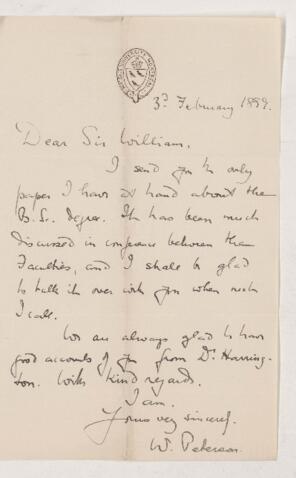 3d February 1899.
Dear Sir William,
I send you the only
paper I have at hand about the
B.Sc. degree. It has been much
discussed in conference between the
Faculties, and I shall be glad
to talk it over with you when next
I call.
We are always glad to have
good accounts of you from Dr. Harring-
ton. With kind regards.
I am.
Yours very sincerely.
W. Peterson.